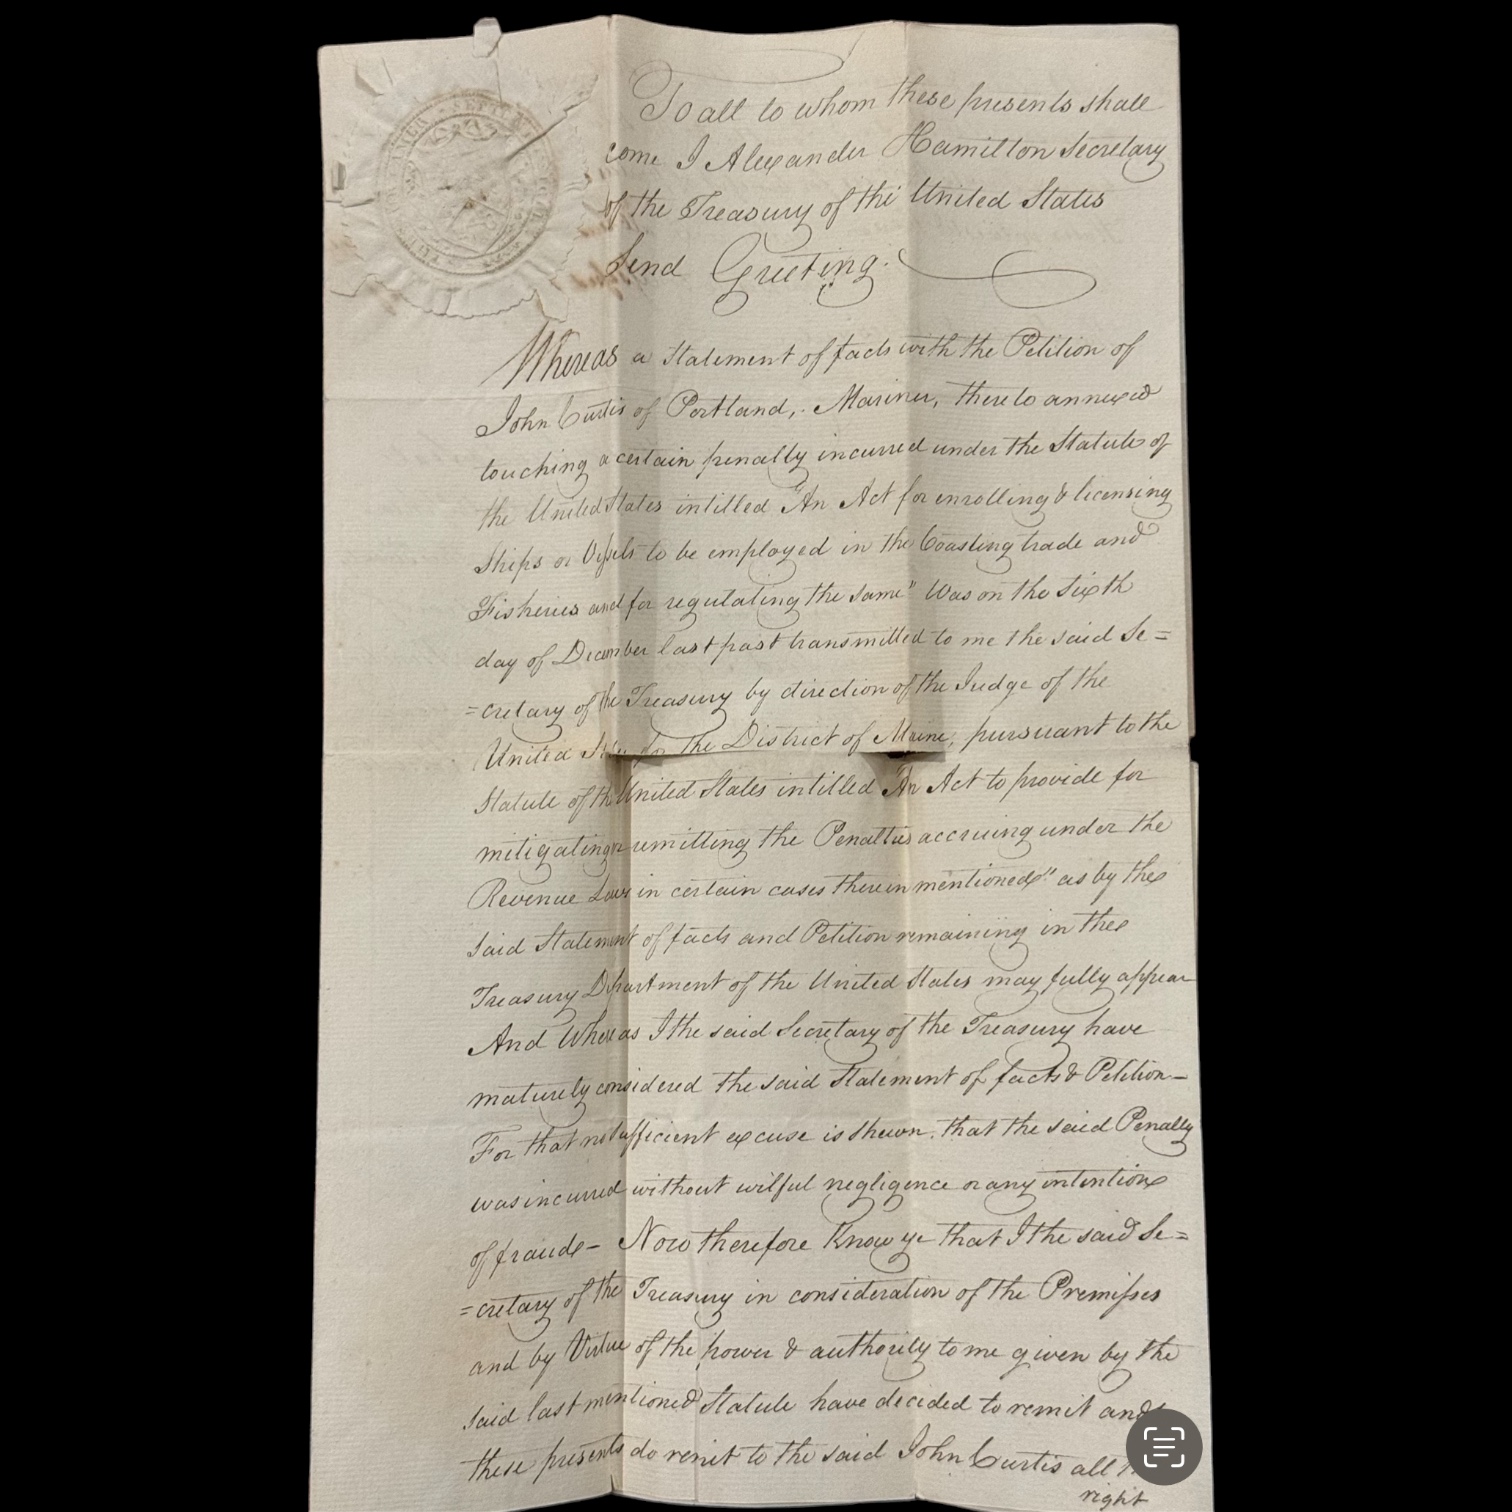 To all to whom these presents shall
come I Alexander Hamilton Secretary
of the Treasury of the United States
Send Greeting.
Whereas a Statement of facts with the Petition of
John Curtis of Portland, Mariner, thereto annexed
touching a certain penalty incurred under the Statute of
the United States intitled "An Act for enrolling & licensing
Ships or Vessels to be employed in the Coasting trade and
Fisheries and for regulating the same" Was on the Sixth
day of December last past transmitted to me the said Se=
=cretary of the Treasury by direction of the Judge of the
United States for the District of Maine, pursuant to the
Statute of the United States intitled "An Act to provide for
mitigating or remitting the Penalties accruing under the
Revenue Laws in certain cases therein mentioned" as by the
said Statement of facts and Petition remaining in the
Treasury Department of the United States may fully appear
And Whereas I the said Secretary of the Treasury have
maturely considered the said Statement of facts & Petition—
For that sufficient excuse is shewn, that the said Penalty
was incurred without wilful negligence or any intention
of fraud— Now therefore Know ye that I the said Se=
=cretary of the Treasury in consideration of the Premisses
and by Virtue of the power & authority to me given by the
said last mentioned Statute have decided to remit and
these presents do remit to the said John Curtis all
right